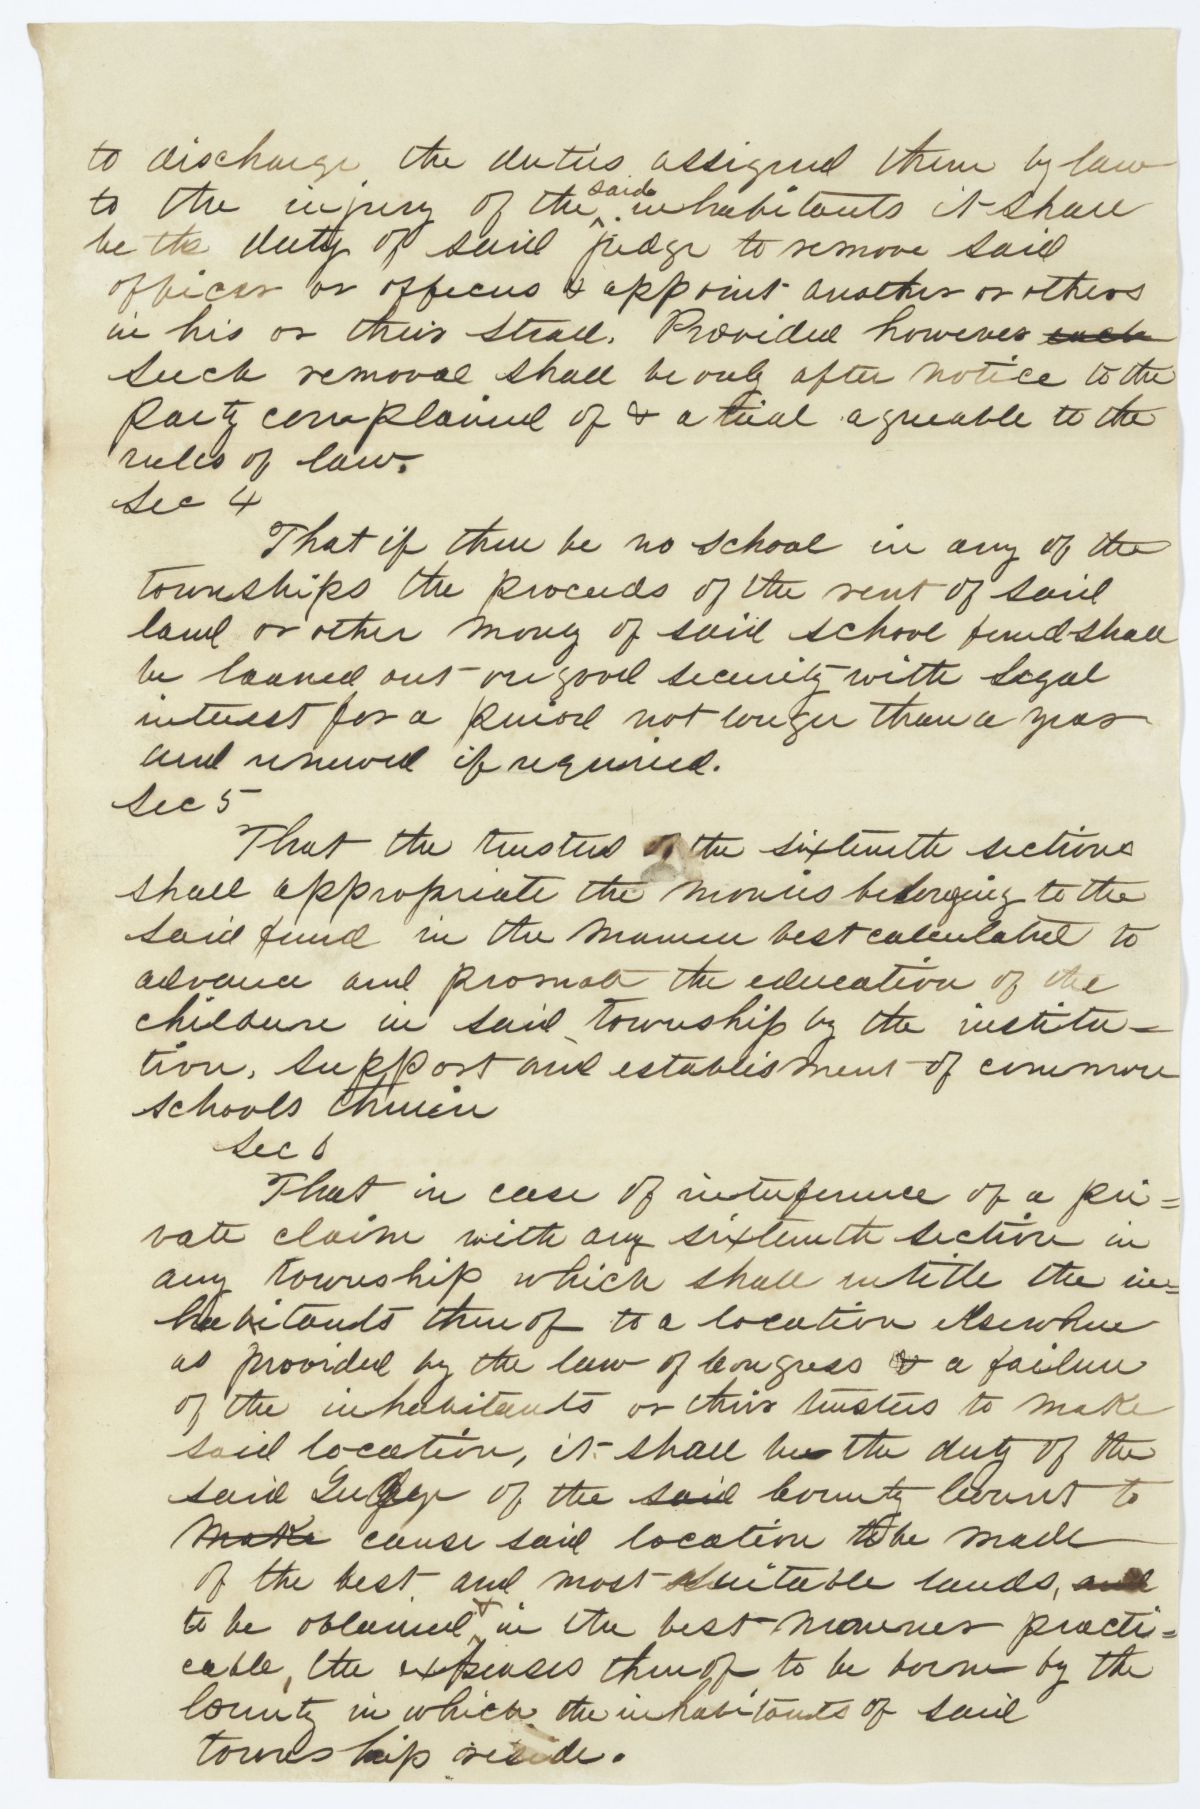 to discharge the duties assigned them by law
to the injury of the said inhabitants it shall
be the duty of said judge to remove said
officer or officers & appoint another or others
in his or their stead. Provided however such
such removal shall be only after notice to the
party complained of & a trial agreable to the
rules of law.
Sec 4
That if there be no school in any of the
townships the proceeds of the rent of said
land or other money of said school fund shall
be loaned out on good security with legal
interest for a period not longer than a year
and renewed if required.
Sec 5
That the trustees of the sixteenth sections
shall appropriate the monies belonging to the
said fund in the manner best calculated to
advance and promote the education of the
children in said township by the institu=
tion, support and establisment of common
schools therein
Sec 6
That in case of interference of a pri=
vate claim with any sixteenth section in
any township which shall intitle the in=
habitants thereof to a location elsewhere
as provided by the law of Congress & a failure
of the inhabitants or their trustees to make
said location, it shall be the duty of the
said Judge of the said County Court to
make cause said location to be made
of the best and most suitable lands, and
to be obtained & in the best manner practi=
cable, the expenses thereof to be borne by the
County in which the inhabitants of said
township reside.